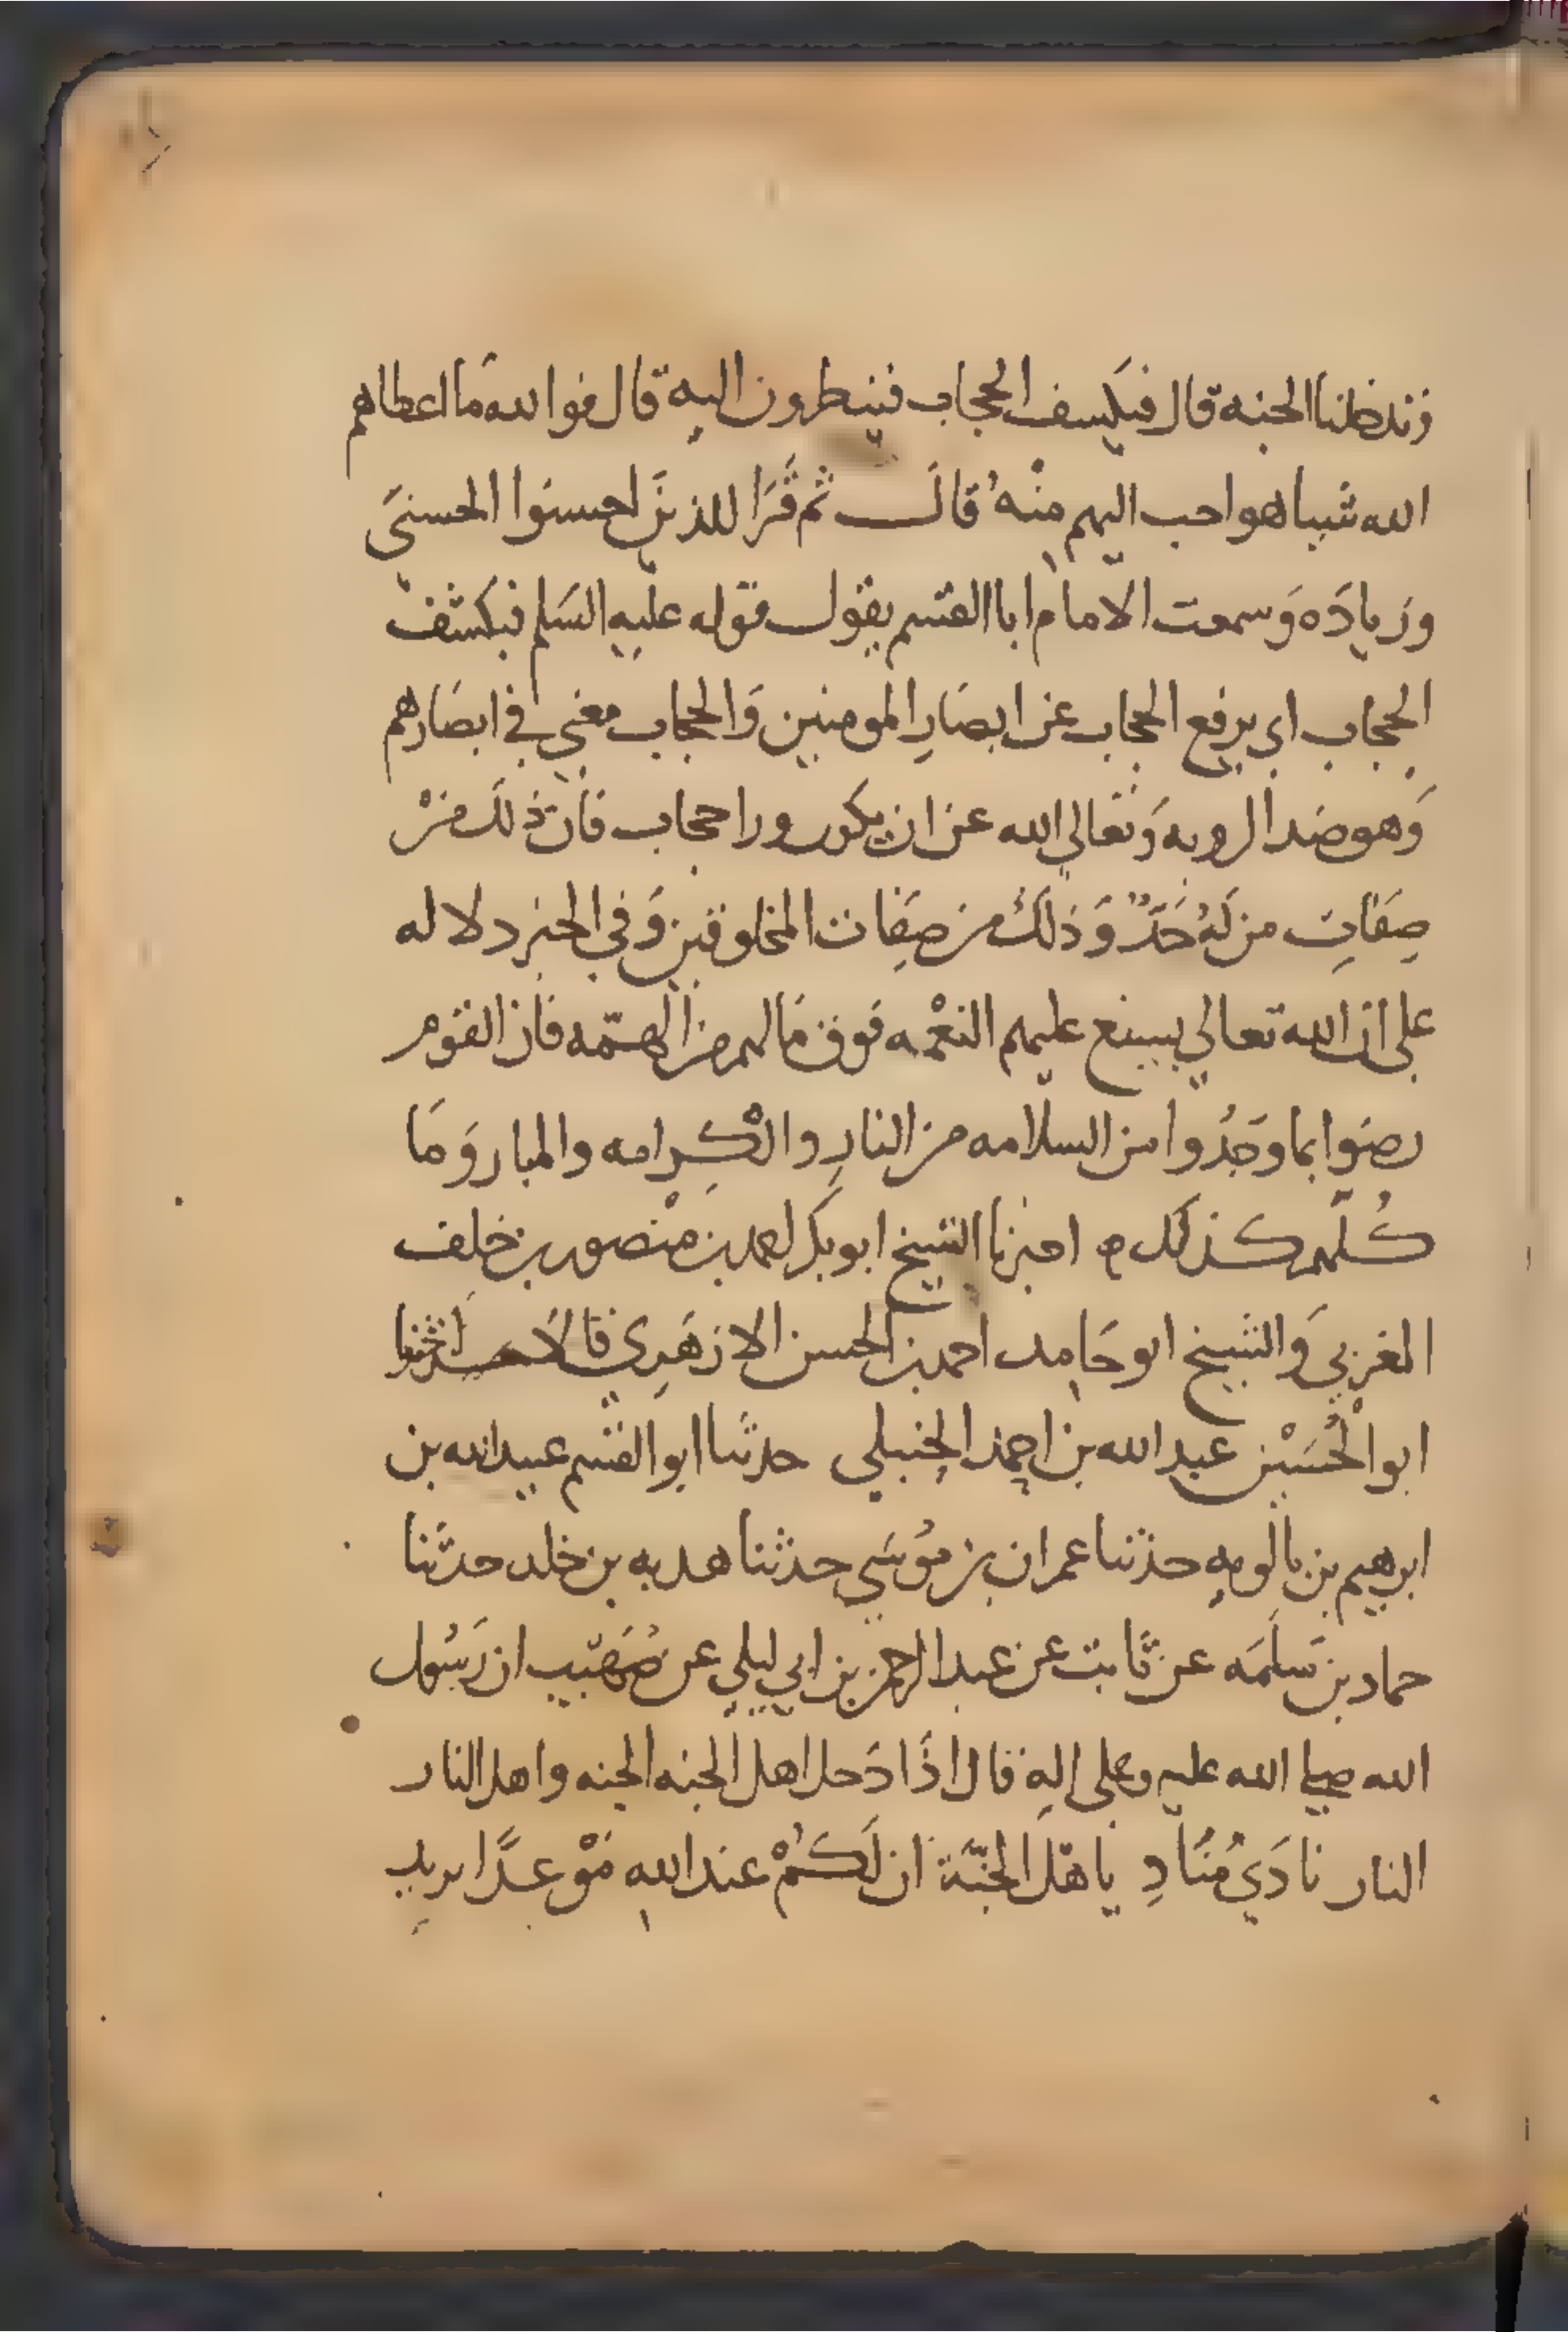 وتدخلنا الجنه قال فيكسف الحجاب فينطرون اليه قال فوالله ما اعطاهم
الله شيا هو احب اليهم منْهُ قالَ ثم قَرَا للذين احسنوا الحسني
وزيادَه وَسمعت الامام ابا القسم يقول قوله عليه السَلم فيكشف
الحجاب اي يرفع الحجاب عن ابصَارِ المومنين وَالحجاب معني في ابصَارهم
وَهو ضد الرويه وَتعالي الله عن ان يكون ورا حجاب فان ذلك منْ
صِفَاتِ من لَهُ حَدٌّ وَذلكَ من صِفات المخلوقين وَفي الخبر دلاله
علي ان الله تعالي يسبغ عليهم النعْمه فوق مَا لهم من الهمّه فان القوم
رضوا بما وجَدُوا من السلامه من النارِ والْكِرامه والمبار وَمَا
كُلّهم كذلك ه اخبرنا الشيخ ابو بكر احمد بن منْصور بن خلف
المغربي وَالشيخ ابو حَامِد احمد بن الحسن الازهَرِي قالَا حدَّثنا
ابو الْحُسَيْن عبد الله بن احمد الحنبلي حدثنا ابو القسم عبيد الله بن
ابرهيم بن بالُويهِ حدثنا عمران بن موُسَي حدثنا هدبه بن خلد حدثنا
حماد بن سَلمَه عن ثَابت عن عبد الرحمن بن ابي ليلي عن صُهَيْب ان رَسُول
الله صلى الله عليه وعلى الهِ قال اذَا دَخل اهل الجنه الجنه واهل النار
النار نادَي مُنَادِ ياهْل الجَنَّة ان لَكُمْ عند اللهِ مَوْعدًا يريد